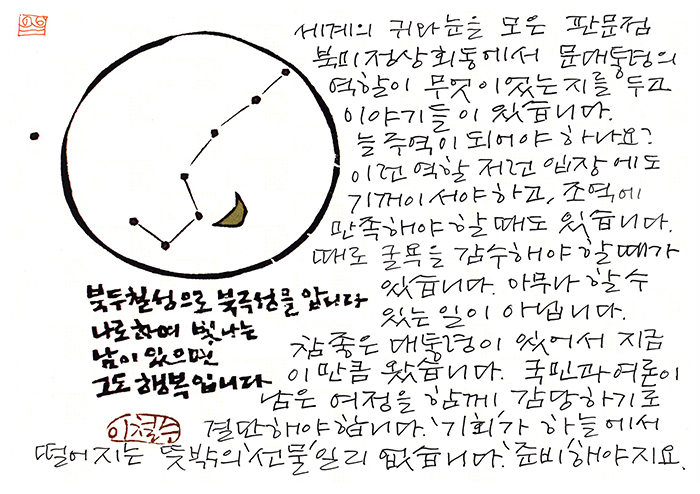 세계의 귀와 눈을 모은 판문점
북미정상회동에서 문대통령의
역할이 무엇이었는지를 두고
이야기들이 있습니다.
늘 주역이 되어야 하나요?
이런 역할 저런 입장에도
기꺼이 서야하고, 조역에
만족해야 할 때도 있습니다.
때로 굴욕을 감수해야 할 때가
있습니다. 아무나 할 수
있는 일이 아닙니다.
참 좋은 대통령이 있어서 지금
이만큼 왔습니다. 국민과 여론이
남은 여정을 함께 감당하기로
결단해야합니다. '기회'가 하늘에서
떨어지는 뜻밖의 '선물'일리 없습니다. '준비'해야지요.
북두칠성으로 북극성을 압니다
나로하여 빛나는
남이 있으면
그도 행복입니다
이철수